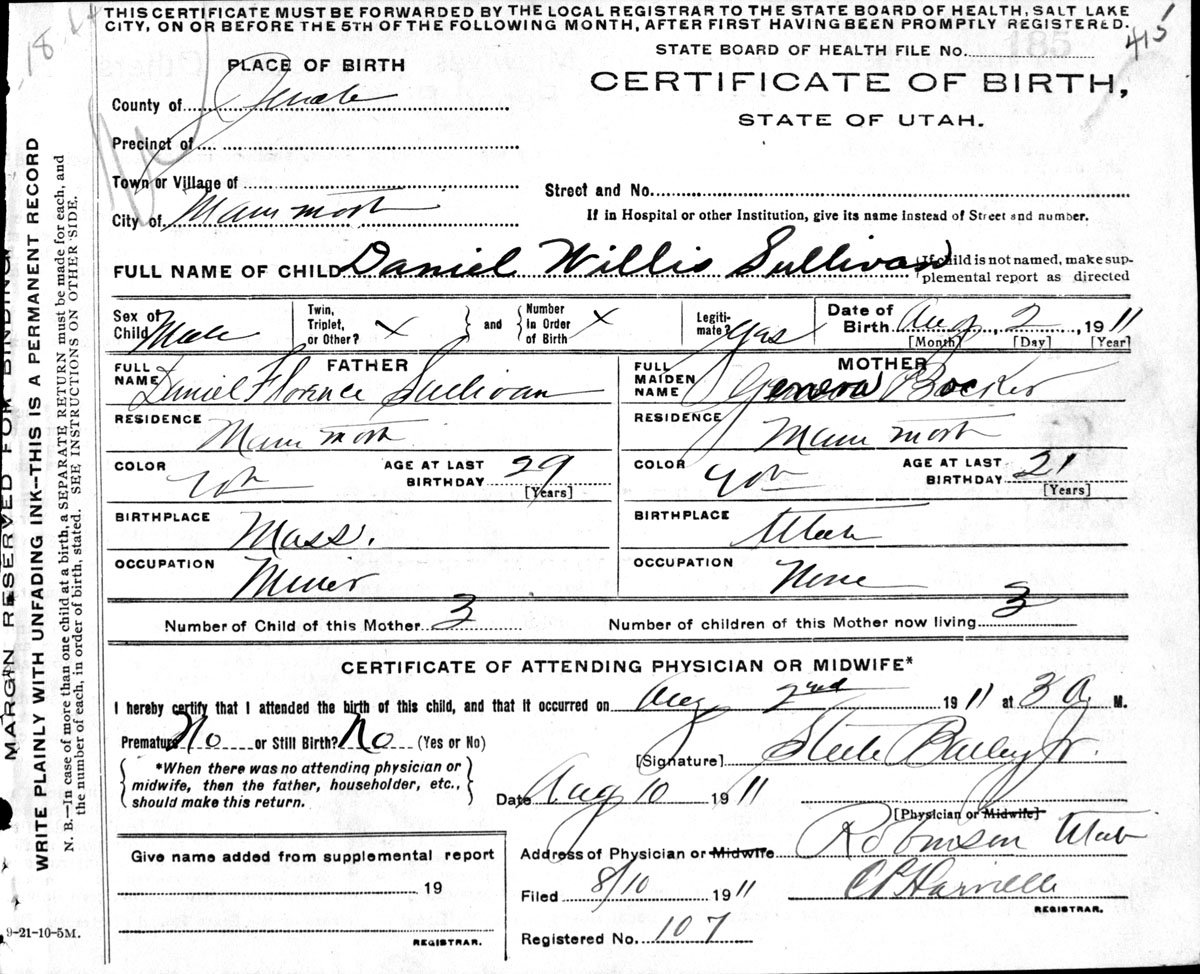 THIS CERTIFICATE MUST BE FORWARDED BY THE LOCAL REGISTRAR TO THE STATE BOARD OF HEALTH, SALT LAKE
CITY, ON OR BEFORE THE 5TH OF THE FOLLOWING MONTH, AFTER FIRST HAVING BEEN PROMPTLY REGISTERED.
415
STATE BOARD OF HEALTH FILE NO.
185
CERTIFICATE OF BIRTH,
STATE OF UTAH.
PLACE OF BIRTH
County of
Precinct of
Town or Village of
Street and No.
City of Mammoth
If in Hospital or other Institution, give its name instead of Street and number.
FULL NAME OF CHILD Daniel Willis Sullivan (If child is not named, make sup-
plemental report as directed
Sex of Child Male
Twin, Triplet, or Other? X and Number In Order of Birth X
Legiti-mate? Yes
Date of Birth Aug 2, 1911
[Month] [Day] [Year]
FATHER
FULL NAME Daniel Florence Sullivan
RESIDENCE Mammoth
COLOR Wh AGE AT LAST BIRTHDAY 29
[Years]
BIRTHPLACE Mass.
OCCUPATION Miner
MOTHER
FULL MAIDEN NAME Geneva
RESIDENCE Mammoth
COLOR Wh AGE AT LAST BIRTHDAY 21
[Years]
BIRTHPLACE Utah
OCCUPATION None
Number of Child of this Mother 3 Number of children of this Mother now living 3
CERTIFICATE OF ATTENDING PHYSICIAN OR MIDWIFE*
I hereby certify that I attended the birth of this child, and that it occurred on Aug 2nd 1911 at 3 A M.
Premature No or Still Birth? No (Yes or No)
*When there was no attending physician or
midwife, then the father, householder, etc.,
should make this return.
[Signature] Steele Bailey Jr.
Date Aug 10 1911
[Physician or Midwife]
Address of Physician or Midwife Robinson Utah
Filed 8/10 1911
REGISTRAR.
Registered No. 107
Give name added from supplemental report
19
REGISTRAR.
9-21-10-5M.
MARGIN RESERVED FOR BINDING
WRITE PLAINLY WITH UNFADING INK—THIS IS A PERMANENT RECORD
N. B.—In case of more than one child at a birth, a SEPARATE RETURN must be made for each, and
the number of each, in order of birth, stated. SEE INSTRUCTIONS ON OTHER SIDE.